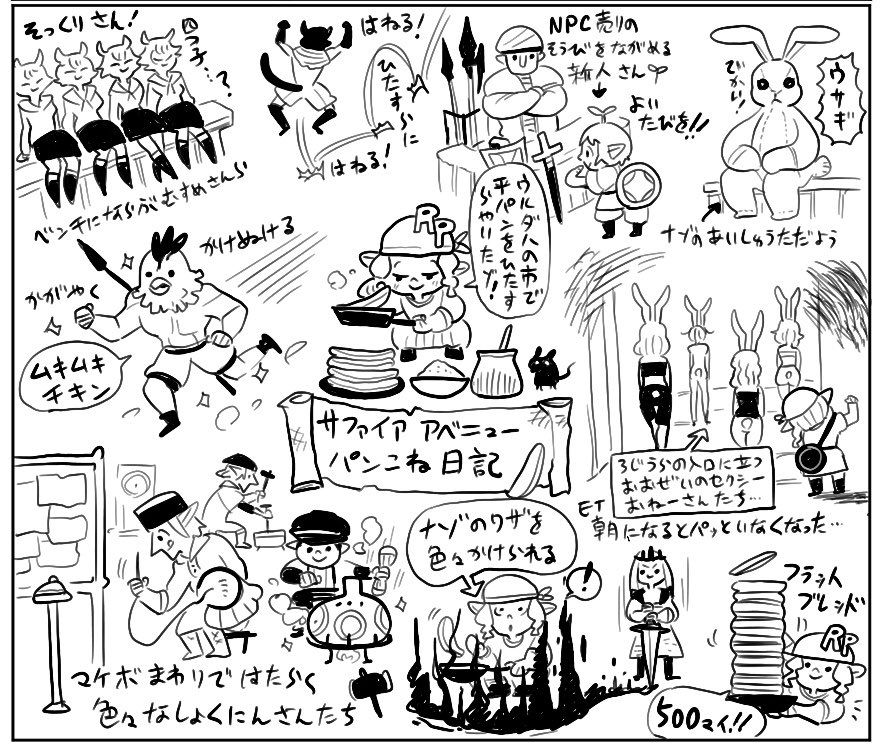 そっくりさん!
四つ子…?
ベンチにならぶむすめさんら
はねる!
ひたすらに
はねる!
NPC売りの
そうびをながめる
新人さん
よい
たびを!!
ウサギ
でかい!
ナゾのあいしゅうただよう
かけぬける
かがやく
ムキムキ
チキン
RR
ウルダハの市で
平パンをひたす
らやいたゾ!
サファイア アベニュー
パンこね 日記
ろじうらの入口に立つ
おおぜいのセクシー
おねーさんたち…
ET
朝になるとパッといなくなった…
マケボまわりではたらく
色々なしょくにんさんたち
ナゾのワザを
色々かけられる
!
フラット
ブレッド
RR
500マイ!!